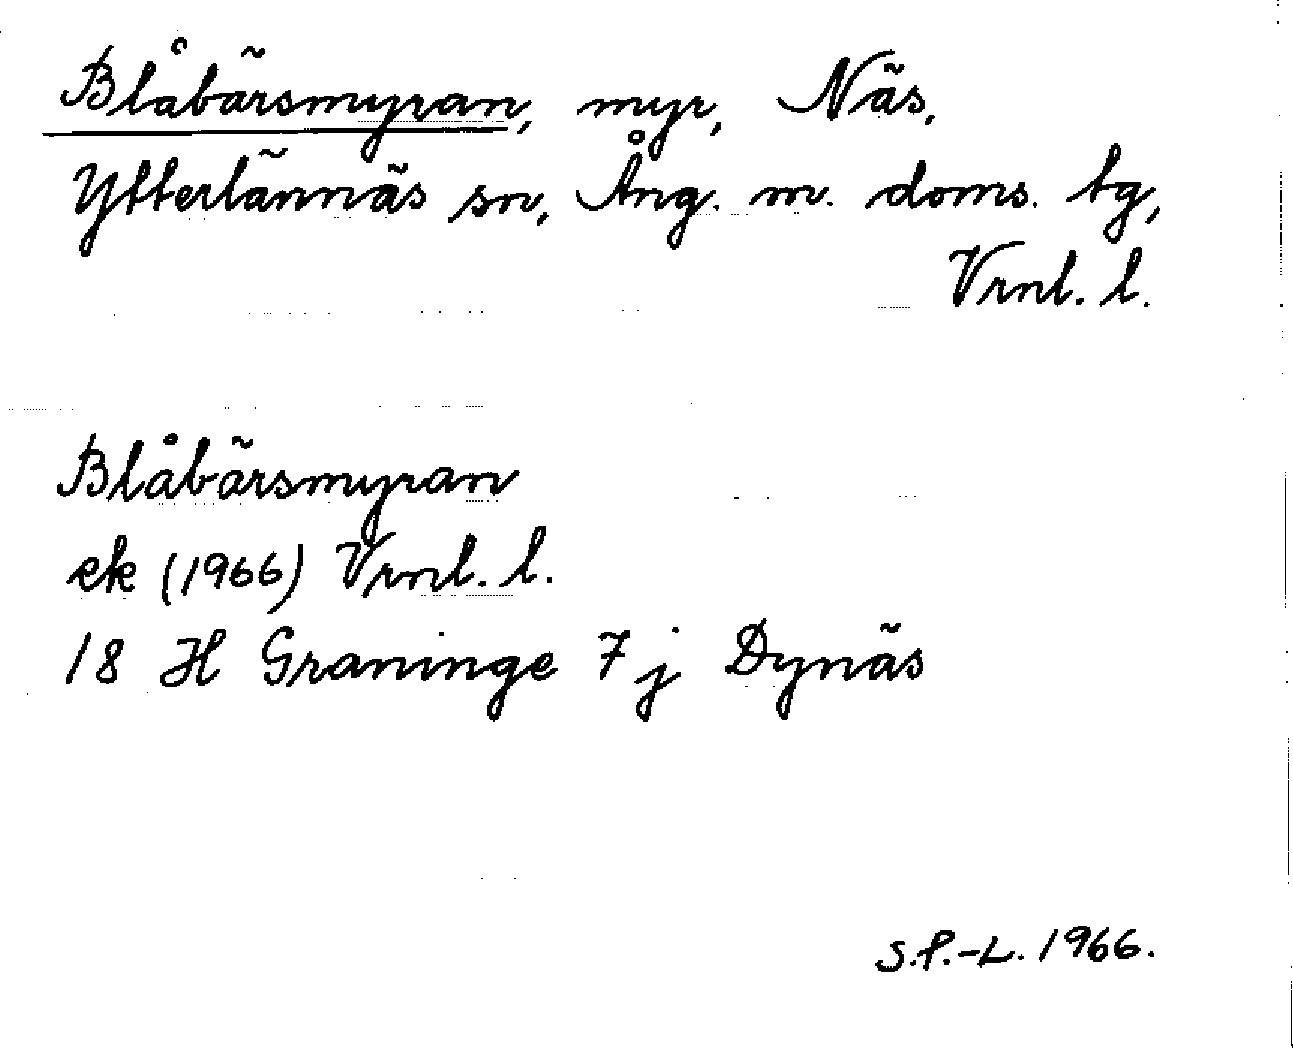 Blåbärsmyran, myr, Näs,
Ytterlännäs sn, Ång. m. doms. tg,
Vrnl. l.
Blåbärsmyran
ek (1966) Vrnl. l.
18 H Graninge 7 j Dynäs
S.P.-L. 1966.